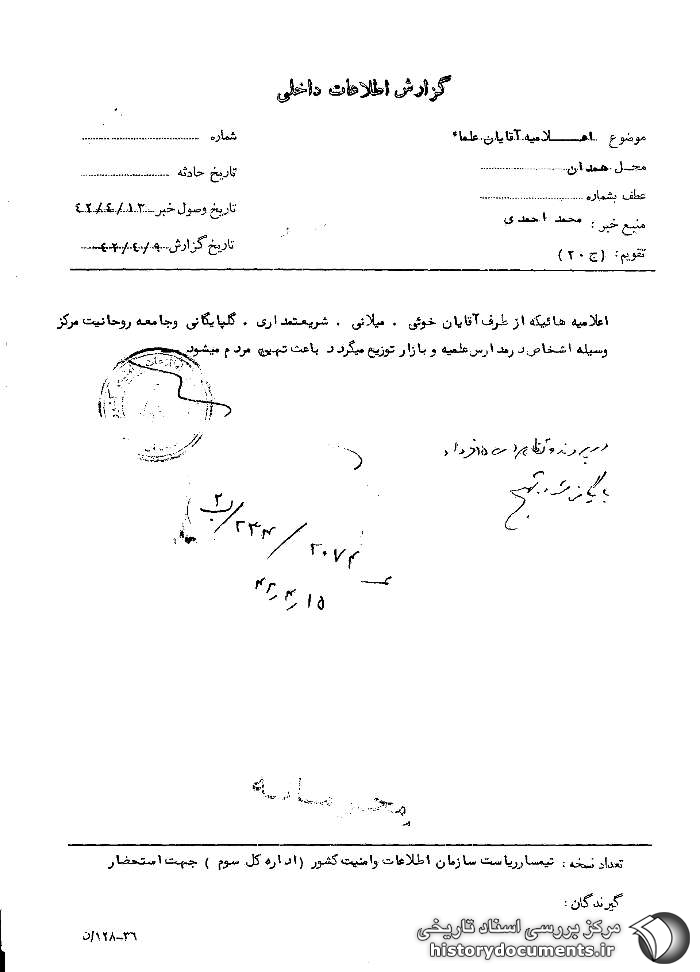 گزارش اطلاعات داخلی
موضوع اعلامیه آقایان علماء
شماره
محل همدان
تاریخ حادثه
عطف بشماره
تاریخ وصول خبر ۴۲/۴/۱۳
منبع خبر : محمد احمدی
تاریخ گزارش ۴۲/۴/۹
تقویم : (ج ۲۰)
اعلامیه هائیکه از طرف آقایان خوئی ، میلانی ، شریعتمداری ، گلپایگانی وجامعه روحانیت مرکز
وسیله اشخاص درمدارس علمیه و بازار توزیع میگردد باعث تهییج مردم میشود
در پرونده تظاهرات ۱۵ خرداد
بایگانی شود
۲۰۷۴ / ۲۳۴ / ۲ب
۴۲٫۴٫۱۵
محرمانه
تعداد نسخه : تیمسارریاست سازمان اطلاعات وامنیت کشور (اداره کل سوم ) جهت استحضار
گیرندگان :
۳۶-۱۲۸/ن
مرکز بررسی اسناد تاریخی
historydocuments.ir